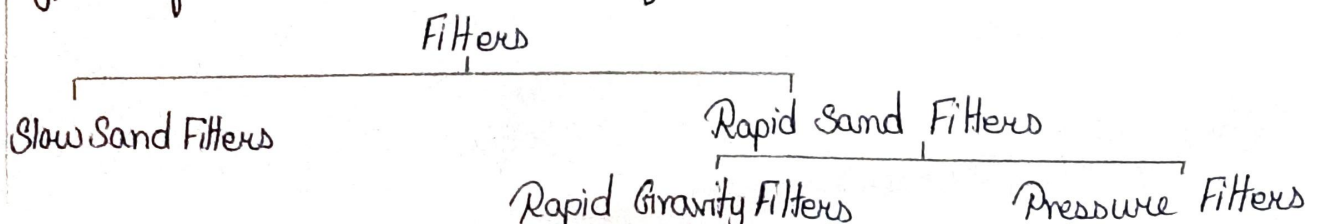 Filters
Slow Sand Filters
Rapid Sand Filters
Rapid Gravity Filters
Pressure Filters